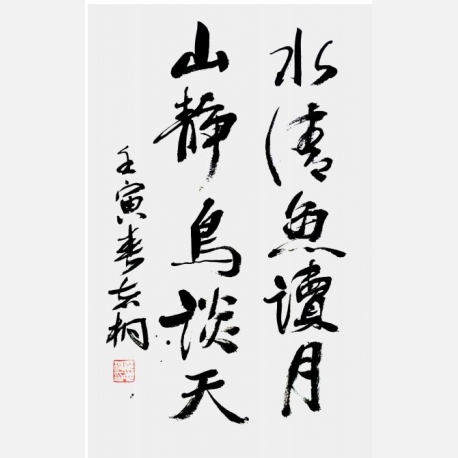 水清魚讀月
山靜鳥談天
壬寅春桐